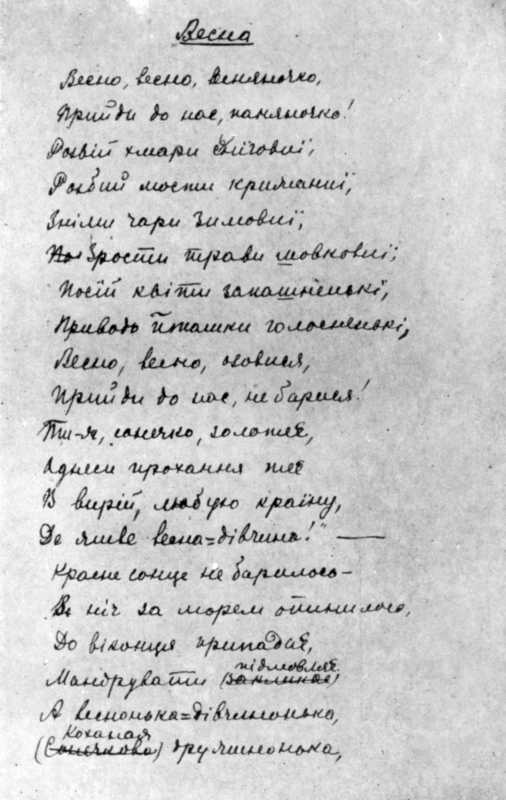 Весна
Весно, весно, весняночко,
Прийди до нас, паняночко!
Розвій хмари
Розбий мости крижаниї,
Зніми чари зимовиї,
Зрости трави шовковиї,
Посій квіти запашненькі,
Приводь пташки голосненькі,
Весно, весно, озовися,
Прийди до нас, не барися!
Ти-ж, сонечко, золотеє,
Однеси прохання теє
В вирій, любую країну,
Де живе весна=дівчина!" —
Красне сонце не барилось –
В ніч за морем опинилось,
До віконця припадає,
підмовляє
Мандрувати (закликає)
А веснонька=дівчинонька,
Коханая
(Сонечкова) дружинонька,